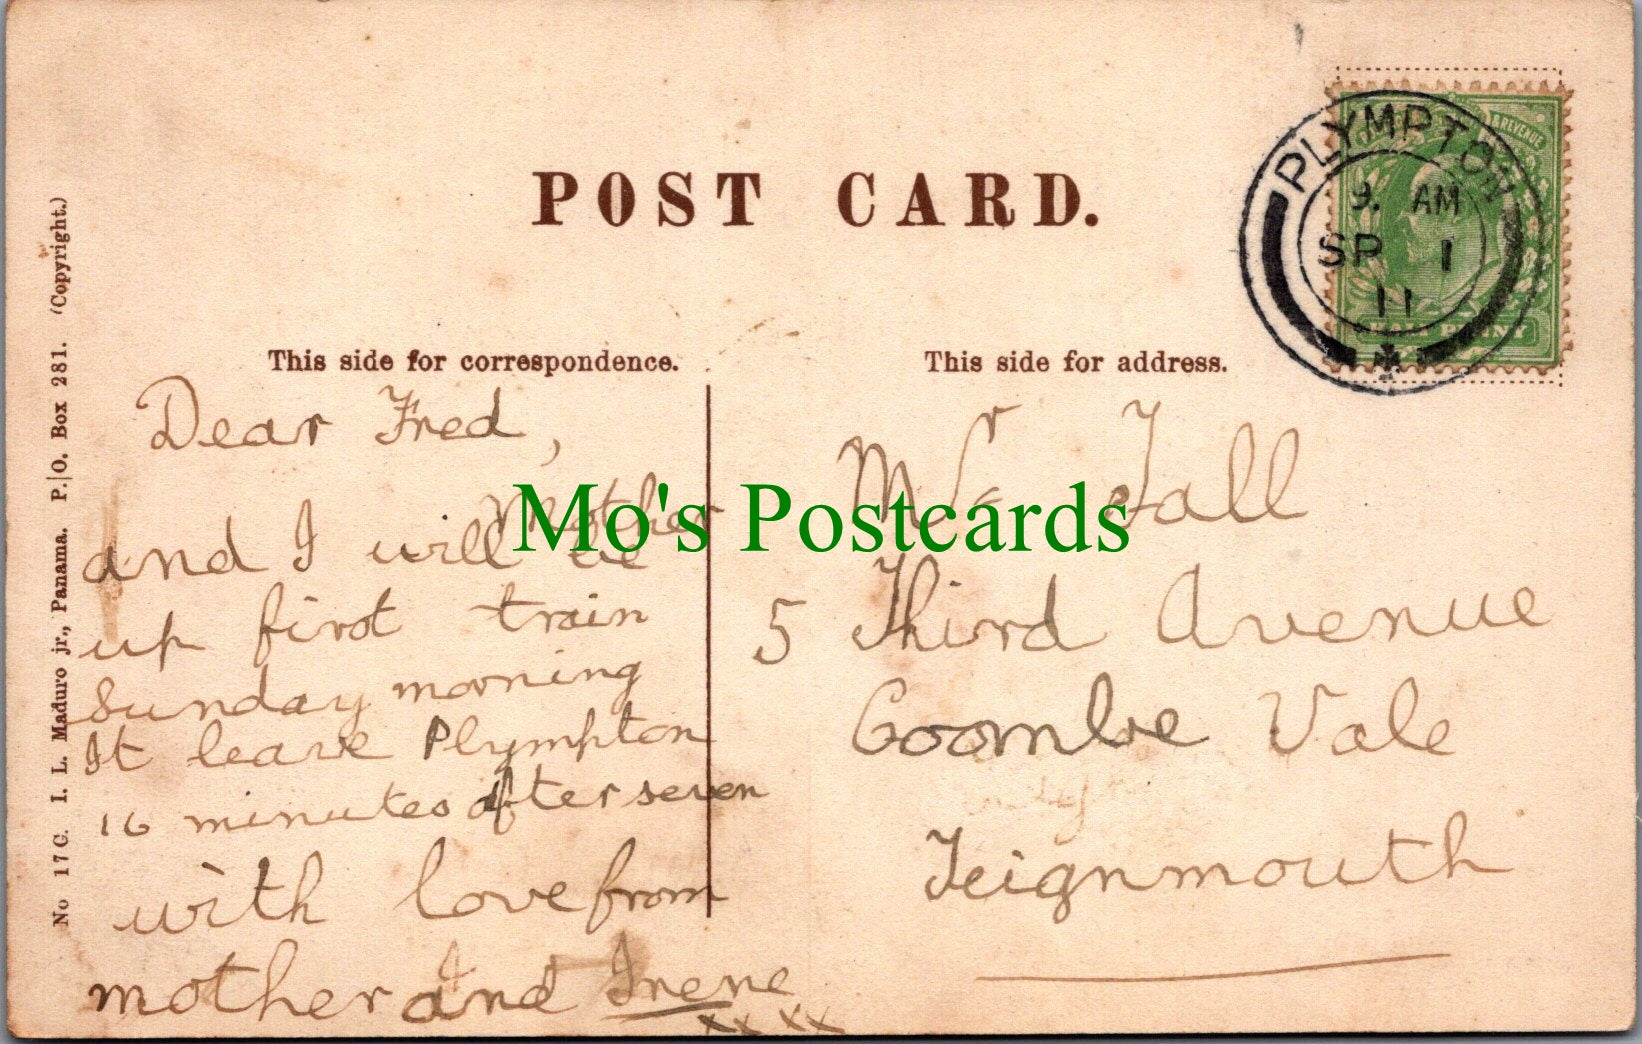 POST CARD.
This side for correspondence.
This side for address.
No 17C. I. L. Maduro jr., Panama. P.O. Box 281. (Copyright.)
PLYMPTON
9. AM
SP 1
11
& REVENUE
HALF PENNY
Mo's Postcards
Dear Fred,
Mother
and I will be
up first train
Sunday morning
It leave Plympton
16 minutes after seven
with love from
mother and Irene
xx xx
Mr Tall
5 Third Avenue
Coombe Vale
Teignmouth